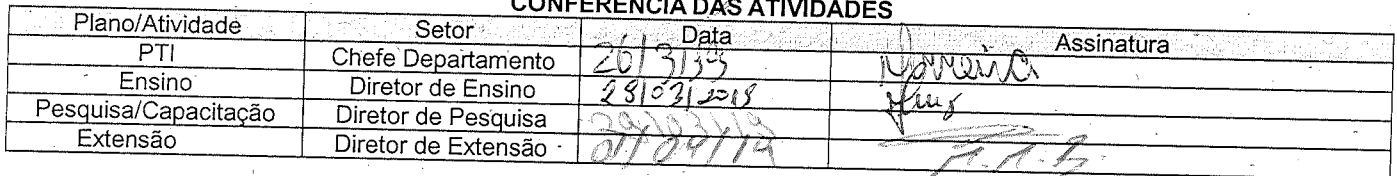 CONFERÊNCIA DAS ATIVIDADES
Plano/Atividade Setor Data Assinatura
PTI Chefe Departamento 26/3/19 Moreira
Ensino Diretor de Ensino 28/03/2019
Pesquisa/Capacitação Diretor de Pesquisa 29/03/19
Extensão Diretor de Extensão 01/04/19